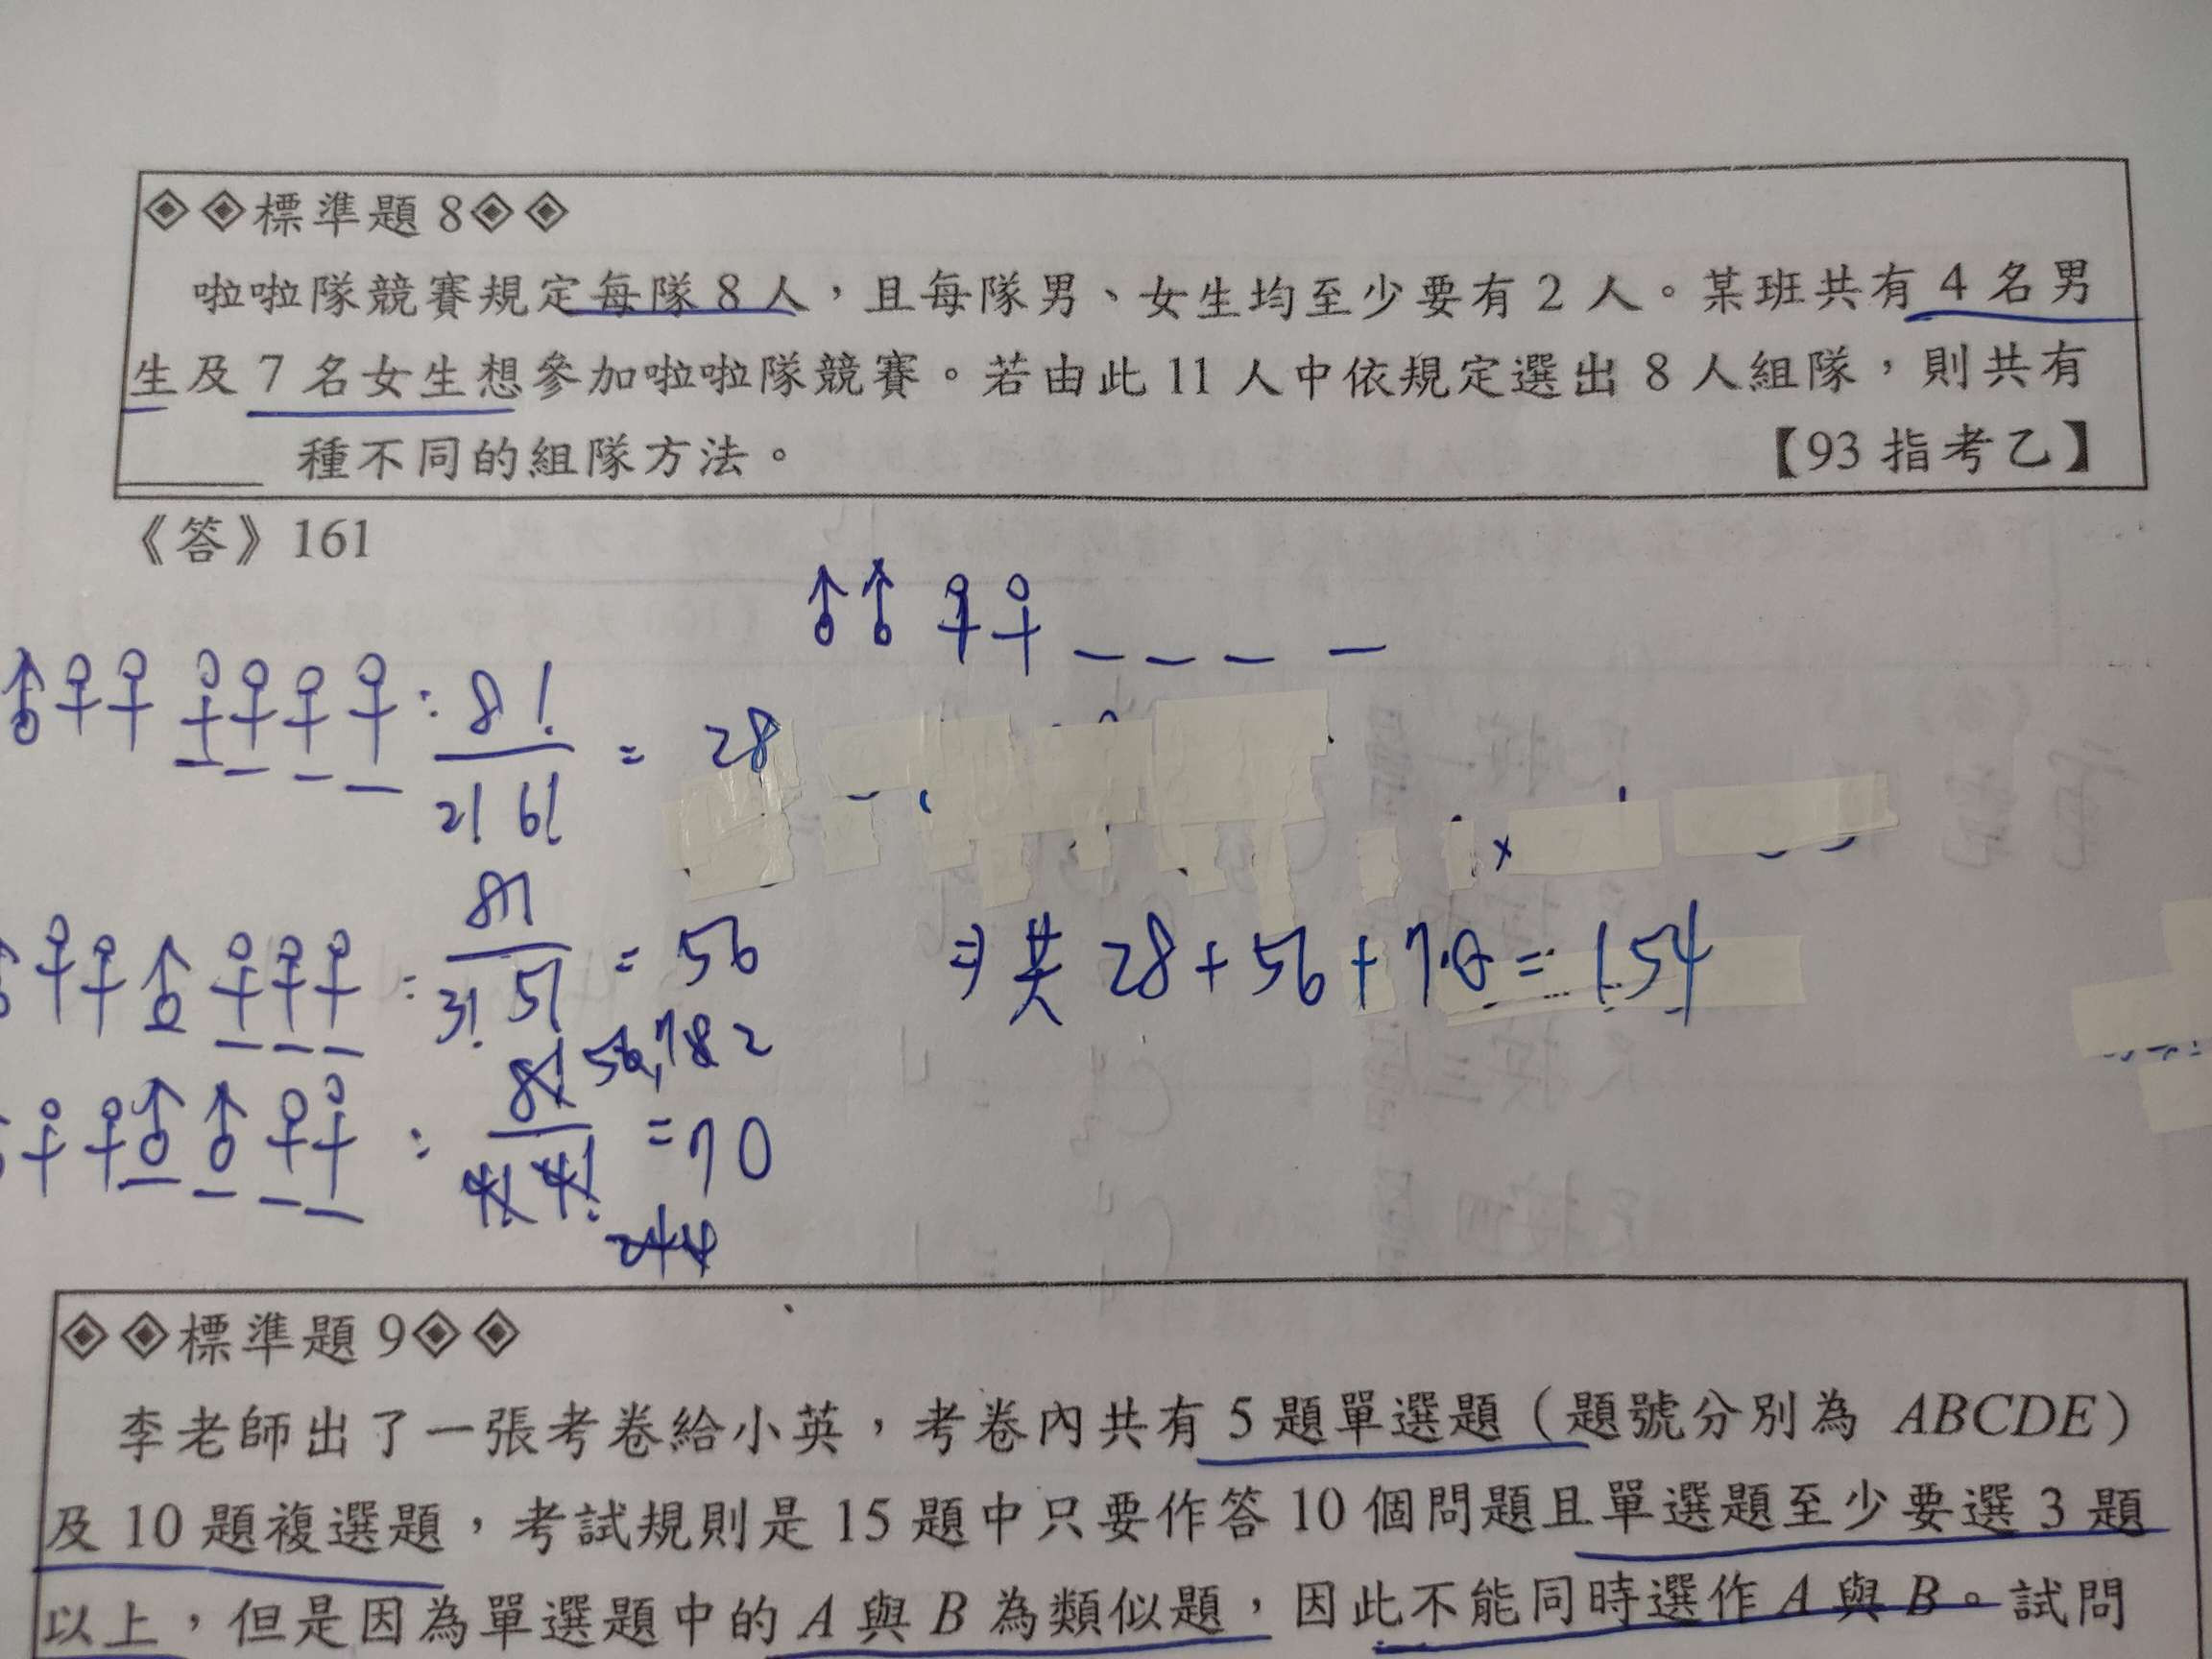 ◈◈標準題 8◈◈
啦啦隊競賽規定每隊 8 人，且每隊男、女生均至少要有 2 人。某班共有 4 名男
生及 7 名女生想參加啦啦隊競賽。若由此 11 人中依規定選出 8 人組隊，則共有
______ 種不同的組隊方法。 【93 指考乙】
《答》161
♂♂♀♀ _ _ _ _
♂♀♀♀♀♀♀ : 8! / 2! 6! = 28
♀♀♂♀♀♀ : 8! / 3! 5! = 56
⇒ 共 28 + 56 + 70 = 154
♀♀♂♂♀♀ : 8! / 4! 4! = 70
◈◈標準題 9◈◈
李老師出了一張考卷給小英，考卷內共有 5 題單選題（題號分別為 ABCDE）
及 10 題複選題，考試規則是 15 題中只要作答 10 個問題且單選題至少要選 3 題
以上，但是因為單選題中的 A 與 B 為類似題，因此不能同時選作 A 與 B。試問